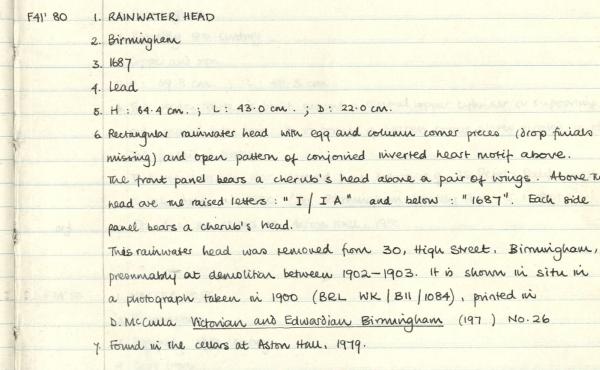 F41' 80 1. RAINWATER HEAD
2. Birmingham
3. 1687
4. Lead
5. H : 64.4 cm. ; L : 43.0 cm. ; D : 22.0 cm.
6. Rectangular rainwater head with egg and column corner pieces (drop finials
missing) and open pattern of conjoined inverted heart motif above.
The front panel bears a cherub's head above a pair of wings. Above the
head are the raised letters : " I / I A " and below : "1687". Each side
panel bears a cherub's head.
This rainwater head was removed from 30, High Street, Birmingham,
presumably at demolition between 1902-1903. It is shown in situ in
a photograph taken in 1900 (BRL WK / B11 / 1084), printed in
D. McCulla Victorian and Edwardian Birmingham (197 ) No. 26
7. Found in the cellars at Aston Hall, 1979.